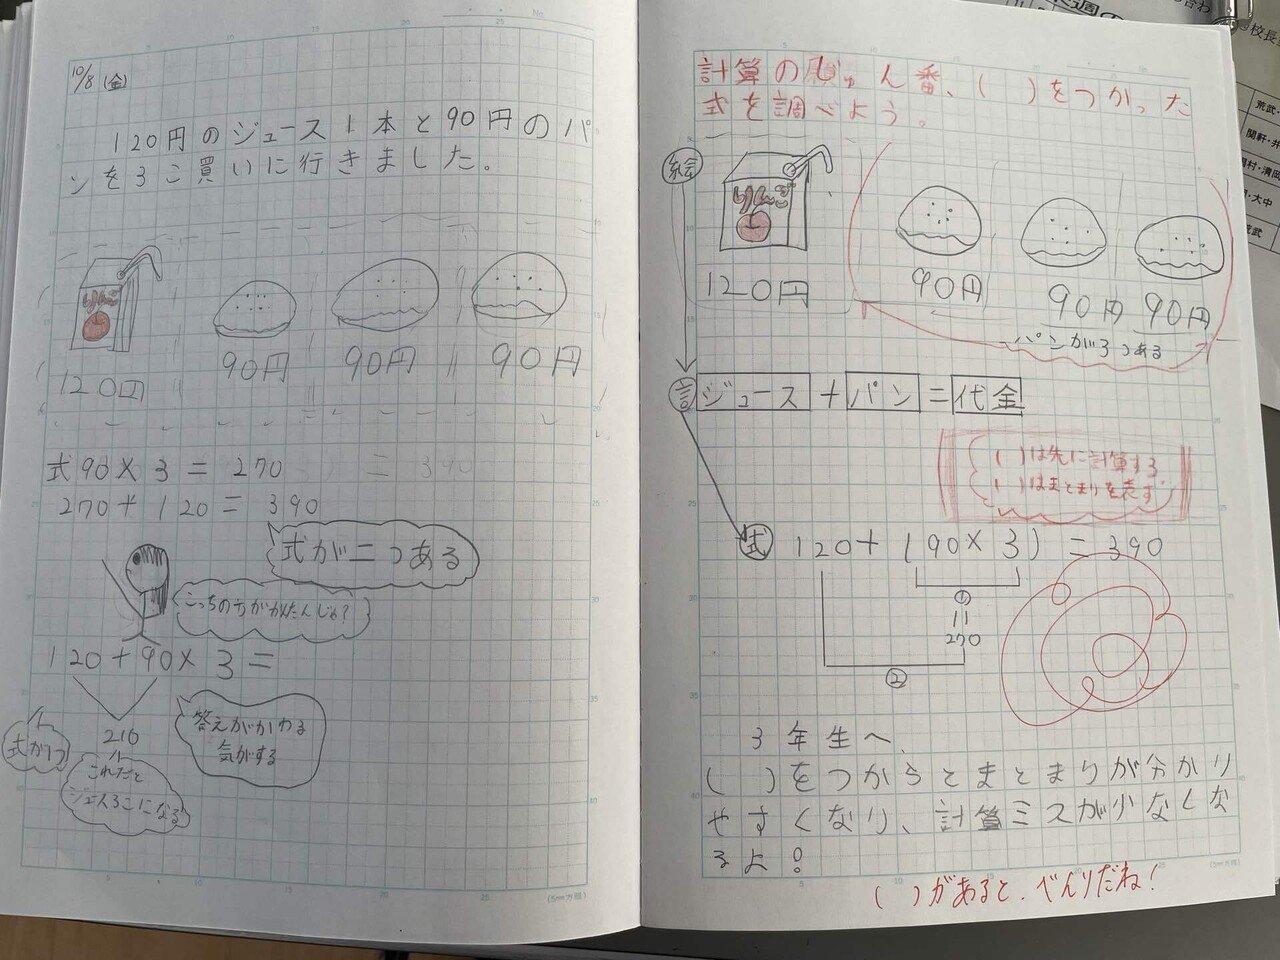 10/8(金)
120円のジュース1本と90円のパ
ンを3こ買いに行きました。
りんご
120円
90円
90円
90円
式90×3=270
=390
270+120=390
式が二つある
こっちの方がかんたんじゃね?
120+90×3=
210
式が1つ
これだと
ジュース3こになる
答えがかわる
気がする
計算のじゅん番、( )をつかった
式を調べよう。
絵
りんご
120円
90円
90円
90円
パンが3つある
言
ジュース+パン=代金
( )は先に計算する
( )はまとまりを表す
式
120+(90×3)=390
①
270
②
3年生へ、
( )をつからとまとまりが分かり
やすくなり、計算ミスが少なくな
るよ!
( )があると、べんりだね!
校長
荒武
関軒・井
村・清岡
・大中
荒武